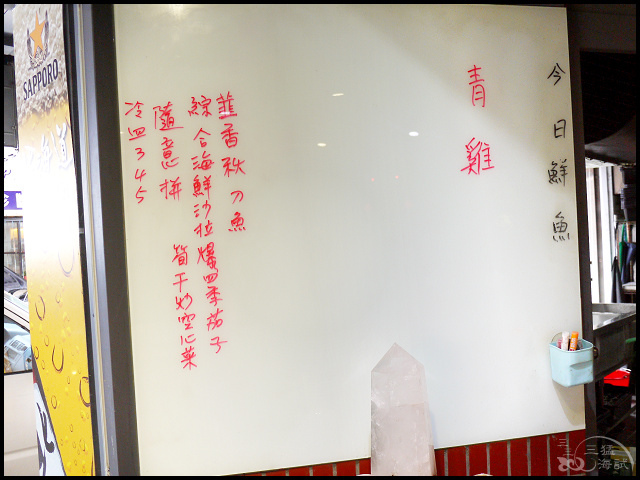 今日鮮魚
青雞
韮香秋刀魚
綜合海鮮沙拉爆四季茄子
隨意拼 筍干炒空心菜
冷皿345
SAPPORO
三猛
海試